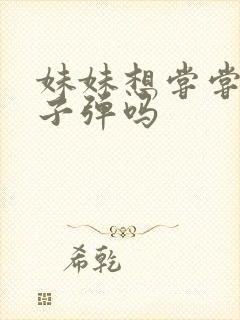 妹妹想尝尝
子弹吗
希乾